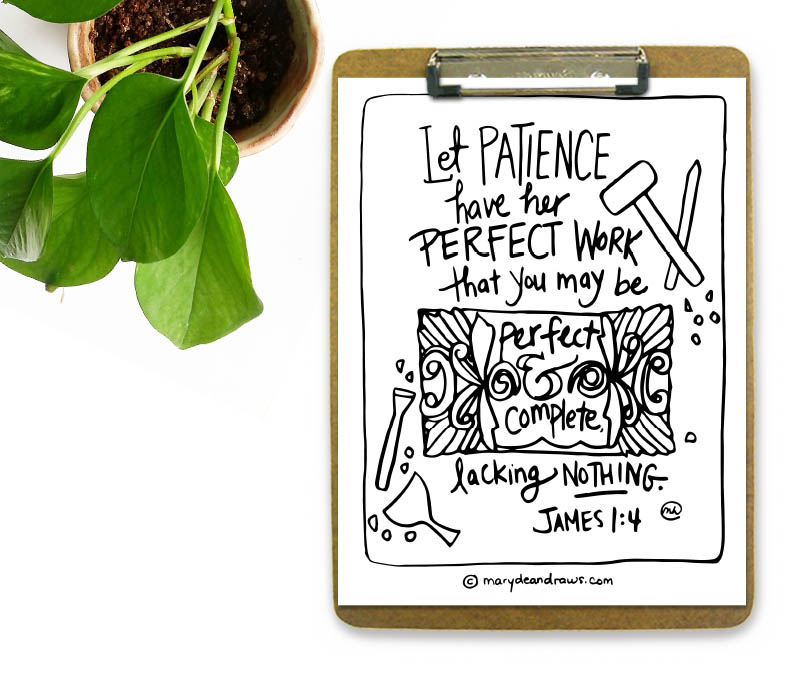 Let PATIENCE
have her
PERFECT WORK
that you may be
Perfect
&
Complete,
lacking NOTHING.
JAMES 1:4
© marydeandraws.com